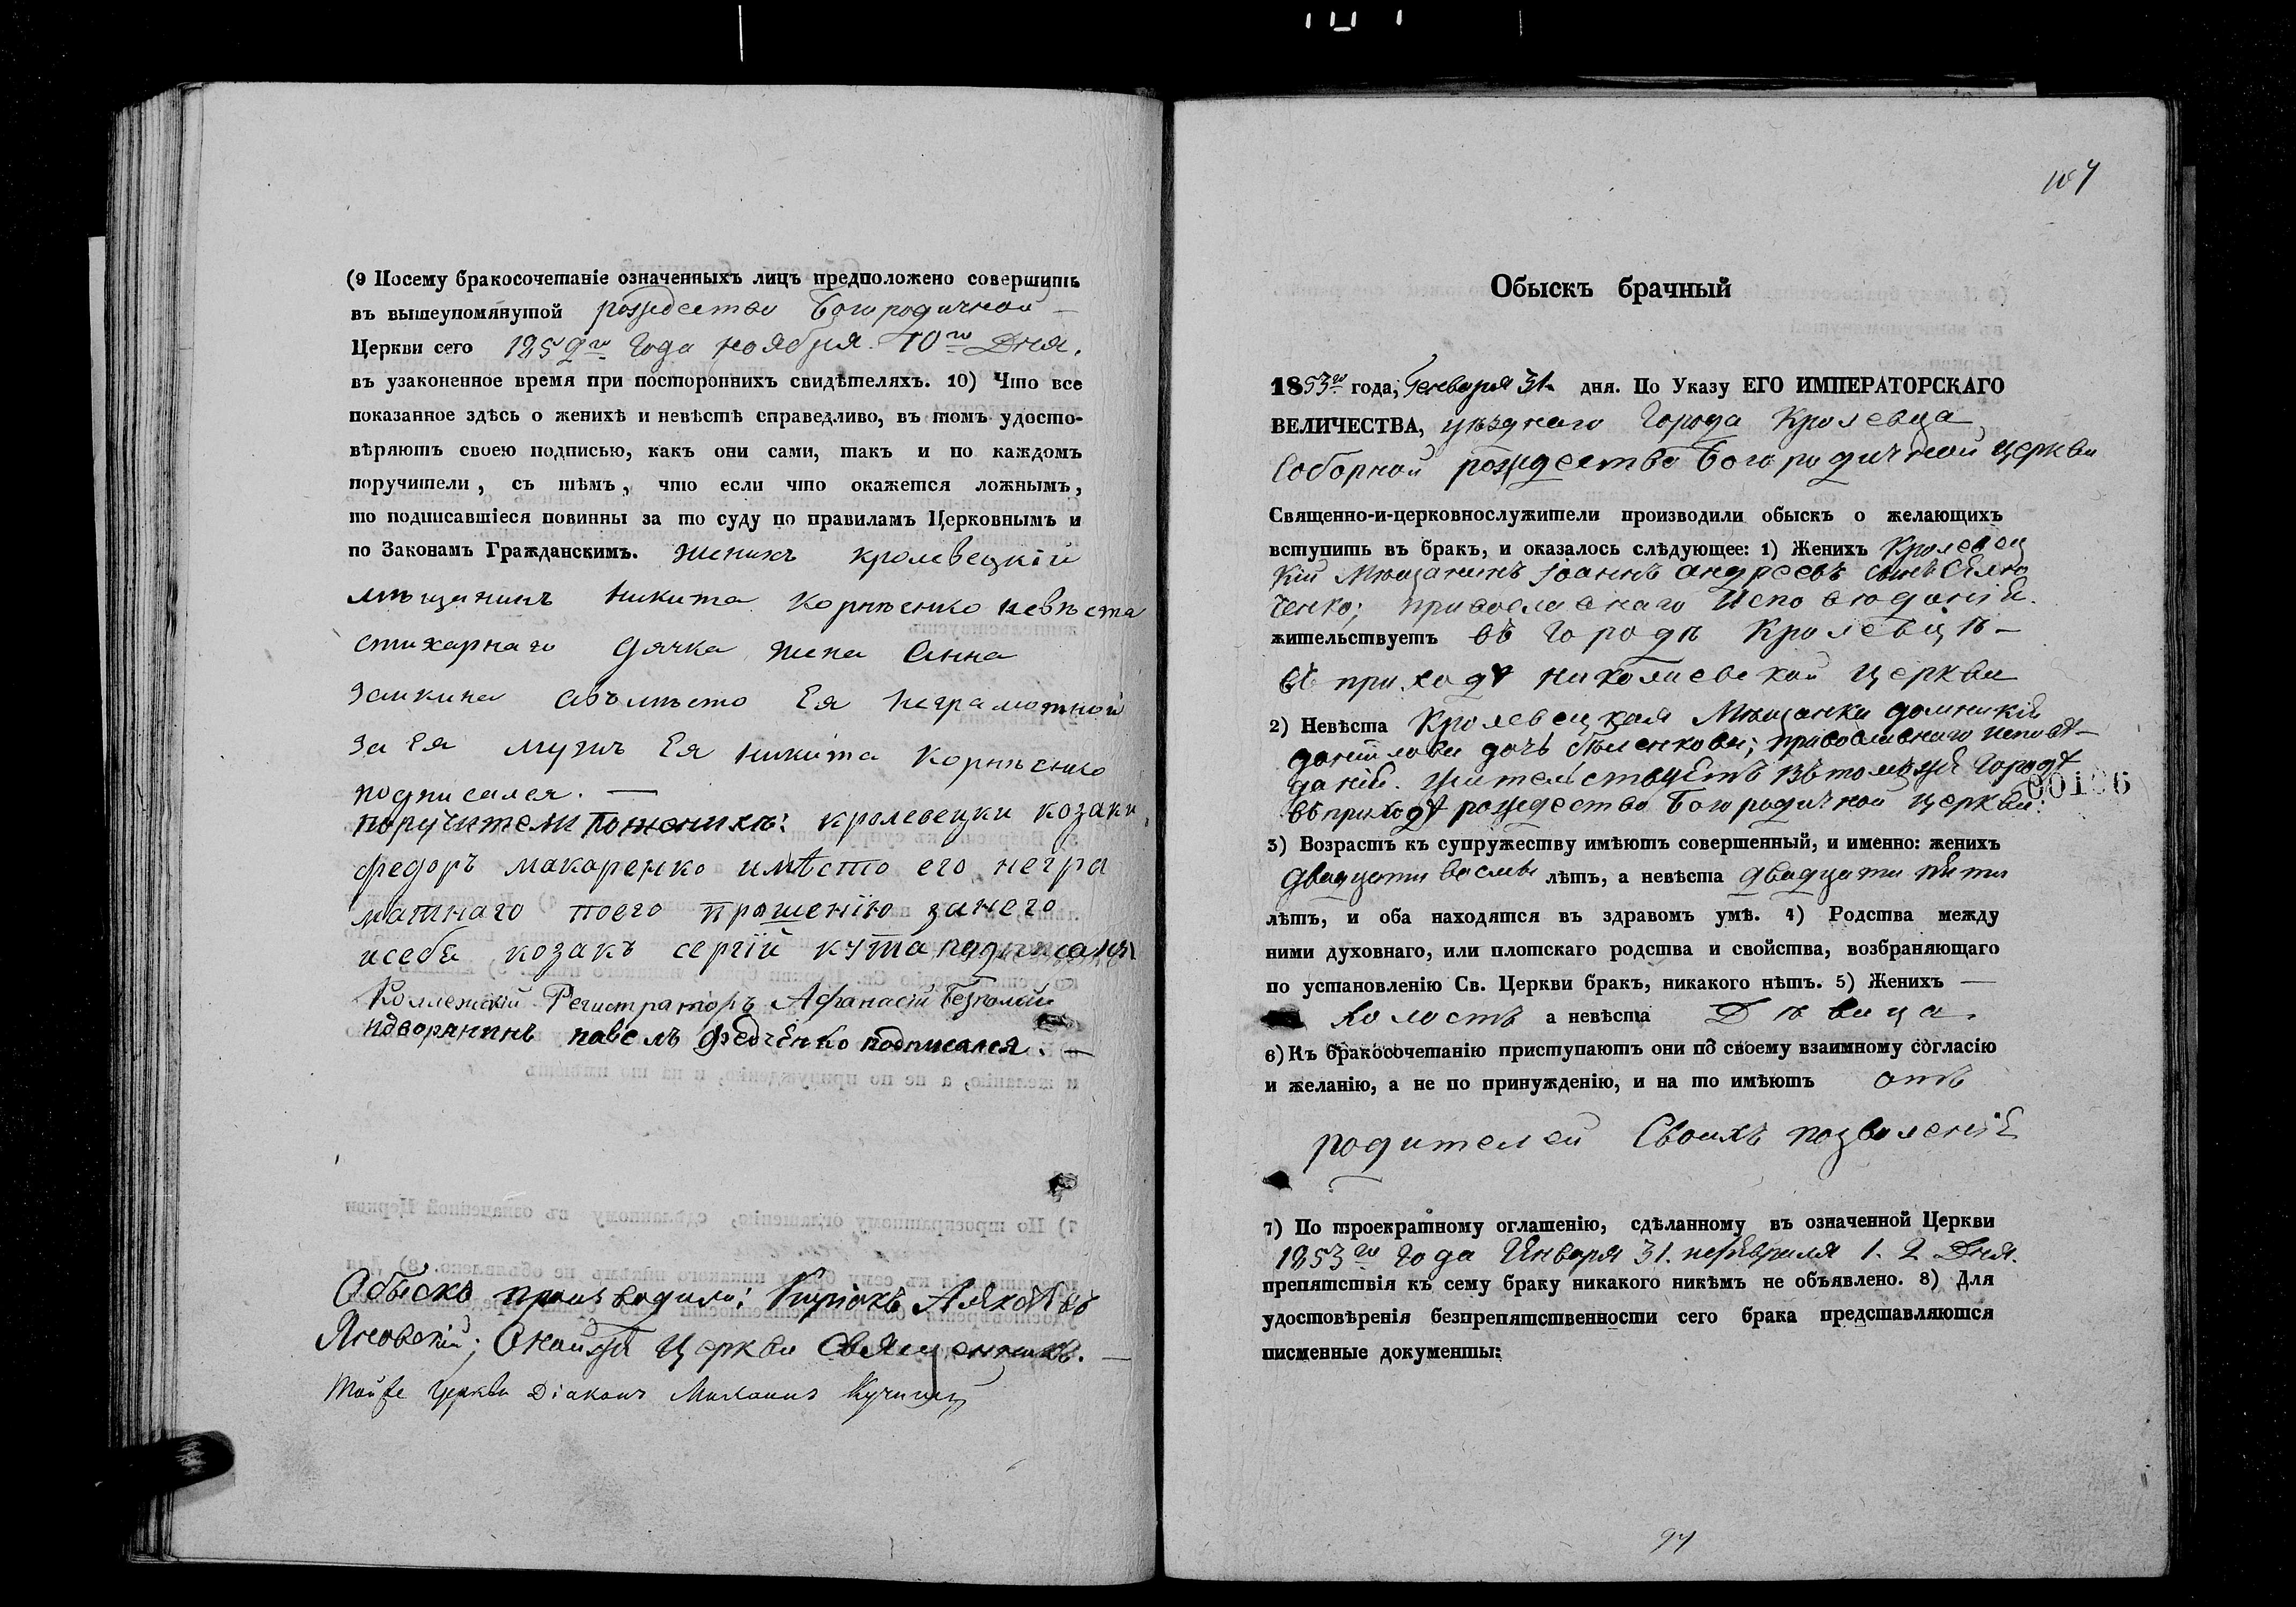 (9 Посему бракосочетаніе означенныхъ лицъ предположено совершить
въ вышеупомянутой рождество Богородичной
Церкви сего 1852го Года ноября 10го Дня.
въ узаконенное время при постороннихъ свидѣтеляхъ. 10) Что все
показанное здѣсь о женихѣ и невѣстѣ справедливо, въ томъ удосто-
вѣряютъ своею подписью, какъ они сами, такъ и по каждомъ
поручители, съ тѣмъ, что если что окажется ложнымъ,
то подписавшіеся повинны за то суду по правиламъ Церковнымъ и
по Законамъ Гражданскимъ. женихъ кролевецкій
мѣщанинъ никита Корнѣенко невѣста
стихарнаго дячка жена Анна
заикина авъмѣсто Ея неграмотной
за Ея мужъ Ея никита Корнѣенко
подписался. —
поручители Поженихѣ: кролевецки козаки
федоръ макаренко имѣсто его негра
матнаго поего прашенію занего
исебя козакъ сергій кута
Коллежскій Регистраторъ Афанасій
идворянинъ павелъ Федченко подписался. —
Обыскъ производили: Яновскій; Онойже Церкви священникъ. —
Тойже Церкви Діаконъ Михаилъ
107
Обыскъ брачный
1853го года, Генваря 31. дня. По Указу ЕГО ИМПЕРАТОРСКАГО
ВЕЛИЧЕСТВА, уѣзднаго Города Кролевца,
Соборной рождество Богородичной церкви
Священно-и-церковнослужители производили обыскъ о желающихъ
вступить въ бракъ, и оказалось слѣдующее: 1) Женихъ Кролевец
кій Мѣщанинъ Іоаннъ андреевъ сынъ
ченко; православнаго
жительствуетъ въ городѣ Кролевцѣ —
въ приходѣ николаевской церкви
2) Невѣста Кролевецкая Мѣщанка домникія
данилова дочь православнаго исповѣ-
данія. жительствуетъ Вътомъже Городѣ
въприходѣ рождество Богородичной церкви:
00106
3) Возрастъ къ супружеству имѣютъ совершенный, и именно: женихъ
двадцати восмы лѣтъ, а невѣста двадцати пяти
лѣтъ, и оба находятся въ здравомъ умѣ. 4) Родства между
ними духовнаго, или плотскаго родства и свойства, возбраняющаго
по установленію Св. Церкви бракъ, никакого нѣтъ. 5) Женихъ —
холостъ а невѣста Дѣвица.
6) Къ бракосочетанію приступаютъ они по своему взаимному согласію
и желанію, а не по принужденію, и на то имѣютъ отъ
родителей Своихъ позволеніе
7) По троекратному оглашенію, сдѣланному въ означенной Церкви
1853го года Января 31. 1. 2 Дня.
препятствія къ сему браку никакого никѣмъ не объявлено. 8) Для
удостовѣренія безпрепятственности сего брака представляются
писменные документы:
94